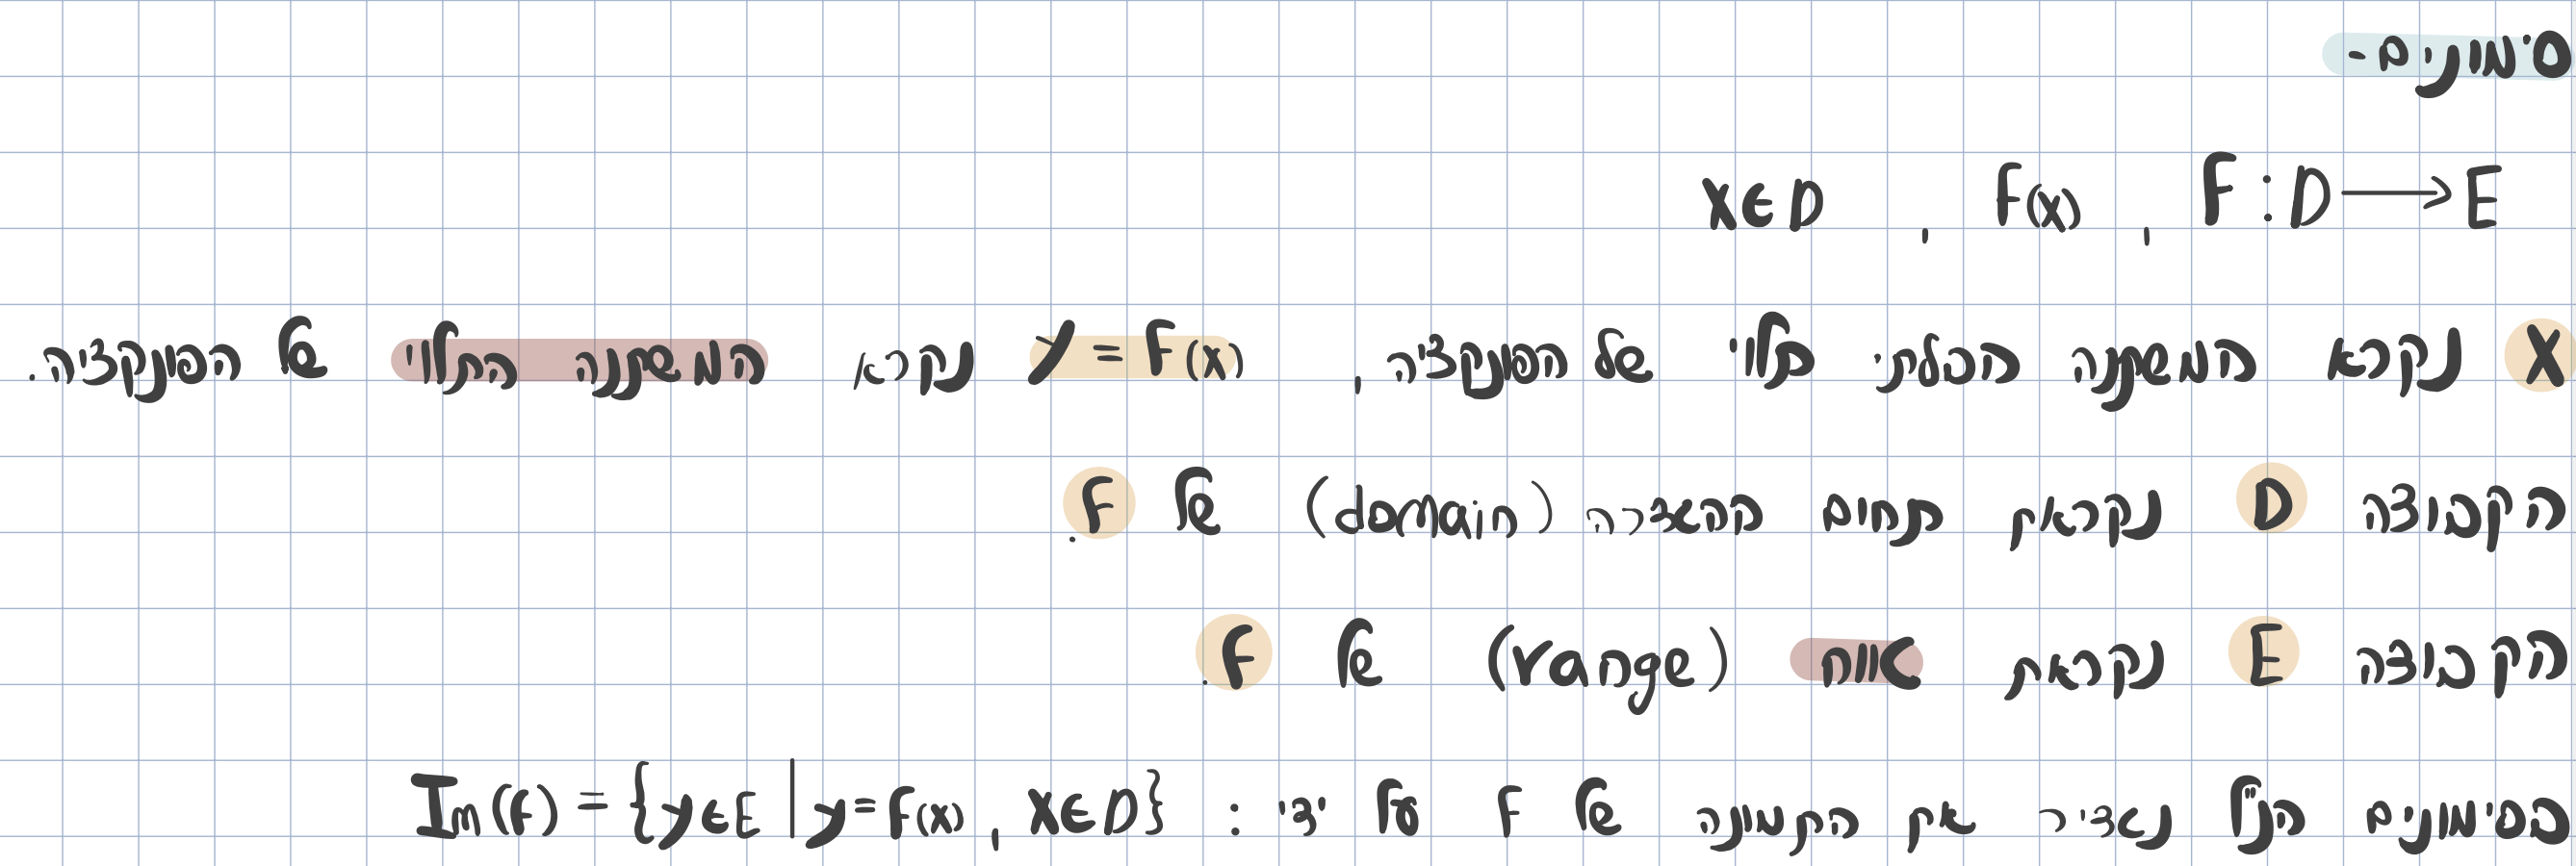 סימונים -
F : D ⟶ E , F(x) , x ∈ D
x נקרא המשתנה הבלתי תלוי של הפונקציה, y = F(x) נקרא המשתנה התלוי של הפונקציה.
הקבוצה D נקראת תחום ההגדרה (domain) של F.
הקבוצה E נקראת טווח (range) של F.
בסימונים הנ"ל נגדיר את התמונה של F על ידי : Im(F) = {y ∈ E | y = F(x), x ∈ D}